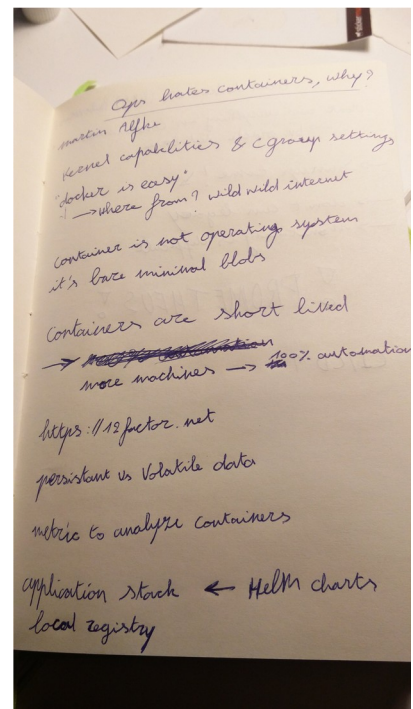 Ops hates containers, why?
martin Alfke
kernel capabilities & cgroup settings
"docker is easy"
→ where from? wild wild internet
container is not operating system
it's bare minimal blobs
containers are short lived
→
more machines → 100% automation
https://12factor.net
persistant vs Volatile data
metric to analyze containers
application stack ← Helm charts
local registry